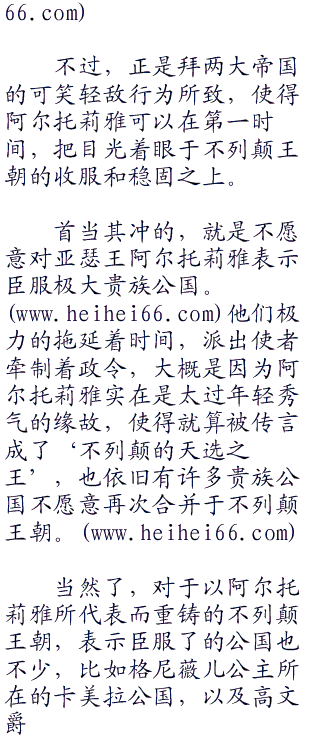 66.com)
不过，正是拜两大帝国
的可笑轻敌行为所致，使得
阿尔托莉雅可以在第一时
间，把目光着眼于不列颠王
朝的收服和稳固之上。
首当其冲的，就是不愿
意对亚瑟王阿尔托莉雅表示
臣服极大贵族公国。
(www.heihei66.com)他们极
力的拖延着时间，派出使者
牵制着政令，大概是因为阿
尔托莉雅实在是太过年轻秀
气的缘故，使得就算被传言
成了‘不列颠的天选之
王’，也依旧有许多贵族公
国不愿意再次合并于不列颠
王朝。(www.heihei66.com)
当然了，对于以阿尔托
莉雅所代表而重铸的不列颠
王朝，表示臣服了的公国也
不少，比如格尼薇儿公主所
在的卡美拉公国，以及高文
爵